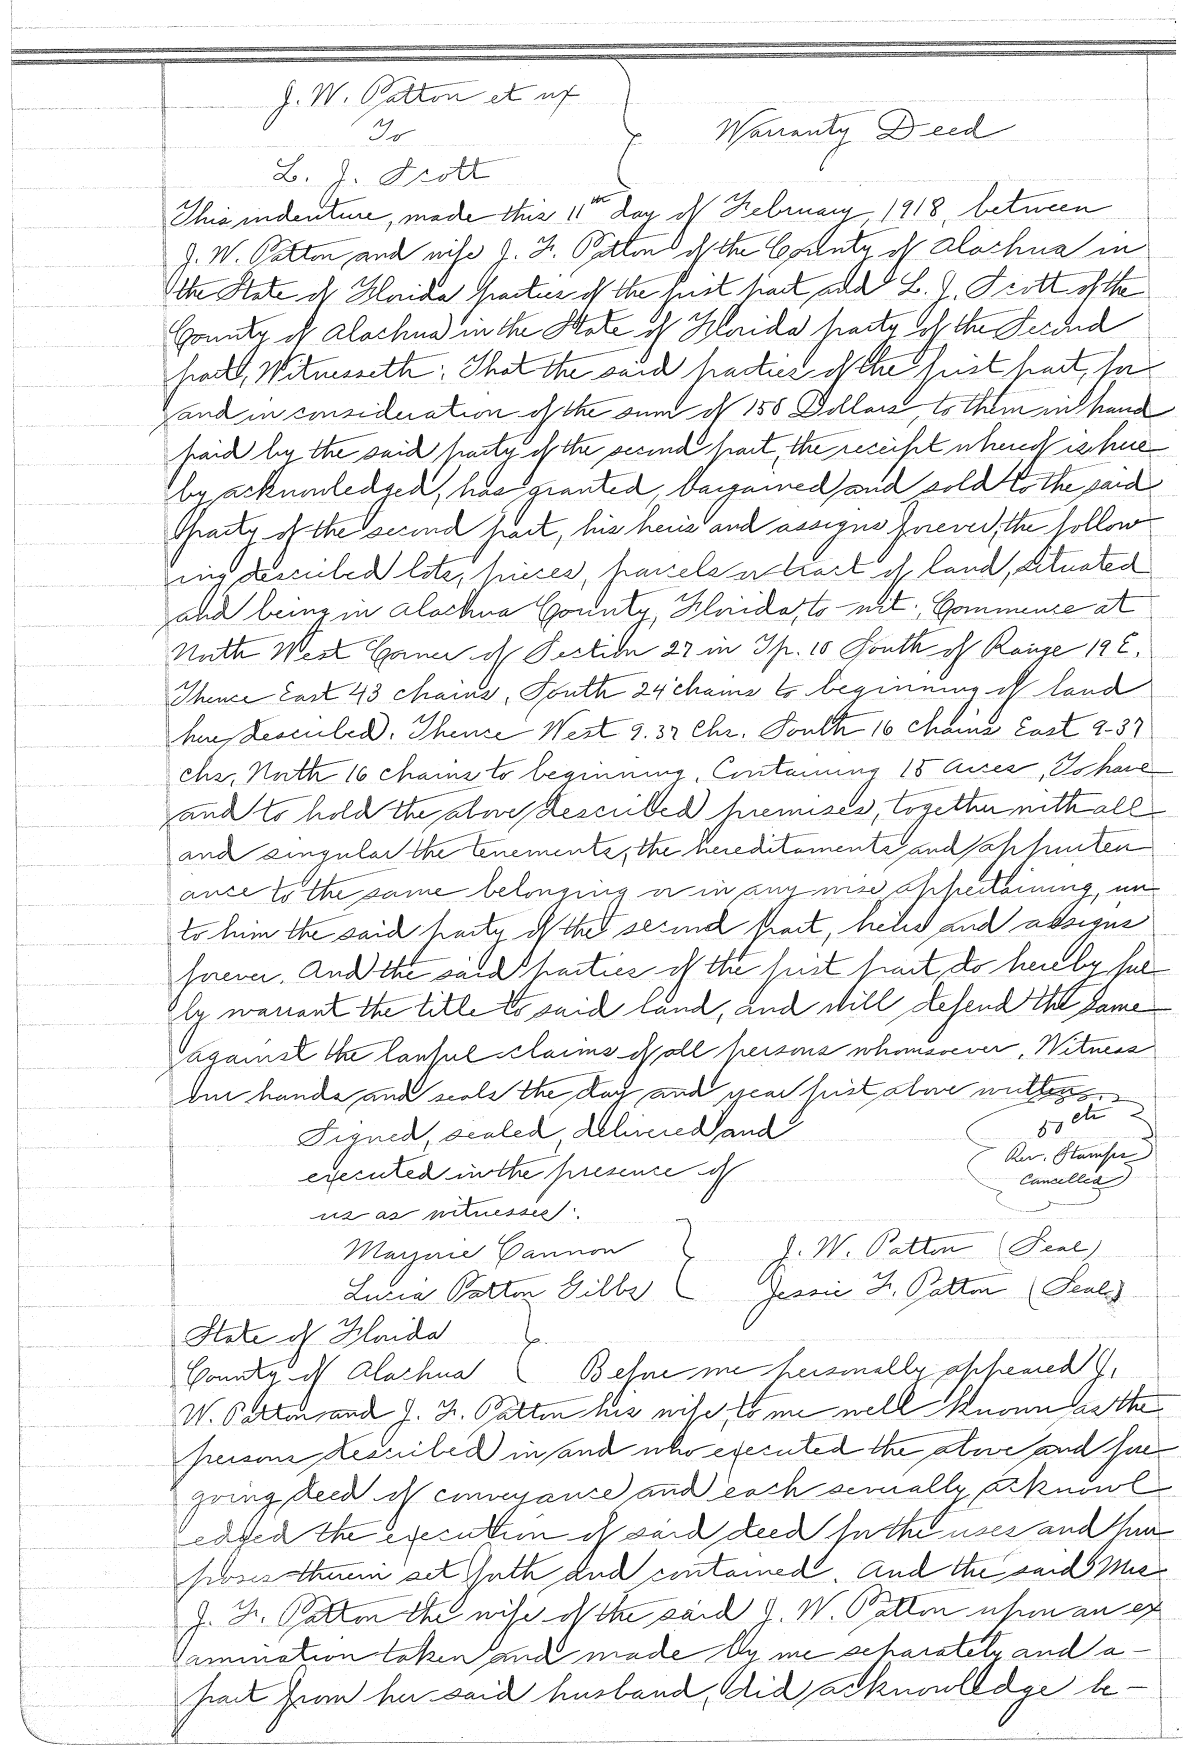 J. W. Patton et ux
To
Warranty Deed
L. J. Scott
This indenture, made this 11th day of February, 1918, between
J. W. Patton and wife J. F. Patton of the County of Alachua in
the State of Florida parties of the first part and L. J. Scott of the
County of Alachua in the State of Florida party of the Second
part, Witnesseth: That the said parties of the first part, for
and in consideration of the sum of 150 Dollars, to them in hand
paid by the said party of the second part, the receipt whereof is here
by acknowledged, has granted, bargained and sold to the said
party of the second part, his heris and assigns forever, the follow
ing described lots, pieces, parcels or tract of land, situated
and being in Alachua County, Florida, to-wit: Commence at
North West Corner of Section 27 in Tp. 10 South of Range 19 E.
Thence East 43 chains, South 24 chains to beginning of land
here described. Thence West 9.37 Chs. South 16 chains East 9-37
chs, North 16 chains to beginning. Containing 15 Acres, To have
and to hold the above described premises, together with all
and singular the tenements, the hereditaments and appurten
ance to the same belonging or in any wise appertaining, un
to him the said party of the second part, heirs and assigns
forever. And the said parties of the first part do hereby ful
ly warrant the title to said land, and will defend the same
against the lawful claims of all persons whomsoever. Witness
our hands and seals the day and year first above written.
Signed, sealed, delivered and
50 cts
executed in the presence of
Rev. Stamps
us as witnesses:
Cancelled
Marjorie Cannon
J. W. Patton (Seal)
Lucia Patton Gibbs
Jessie F. Patton (Seal)
State of Florida
County of Alachua
Before me personally appeared J.
W. Patton and J. F. Patton his wife, to me well known as the
persons described in and who executed the above and fore
going deed of conveyance and each severally acknowl
edged the execution of said deed for the uses and pur
poses therein set forth and contained. And the said Mrs
J. F. Patton the wife of the said J. W. Patton upon an ex
amination taken and made by me separately and a-
part from her said husband, did acknowledge be-